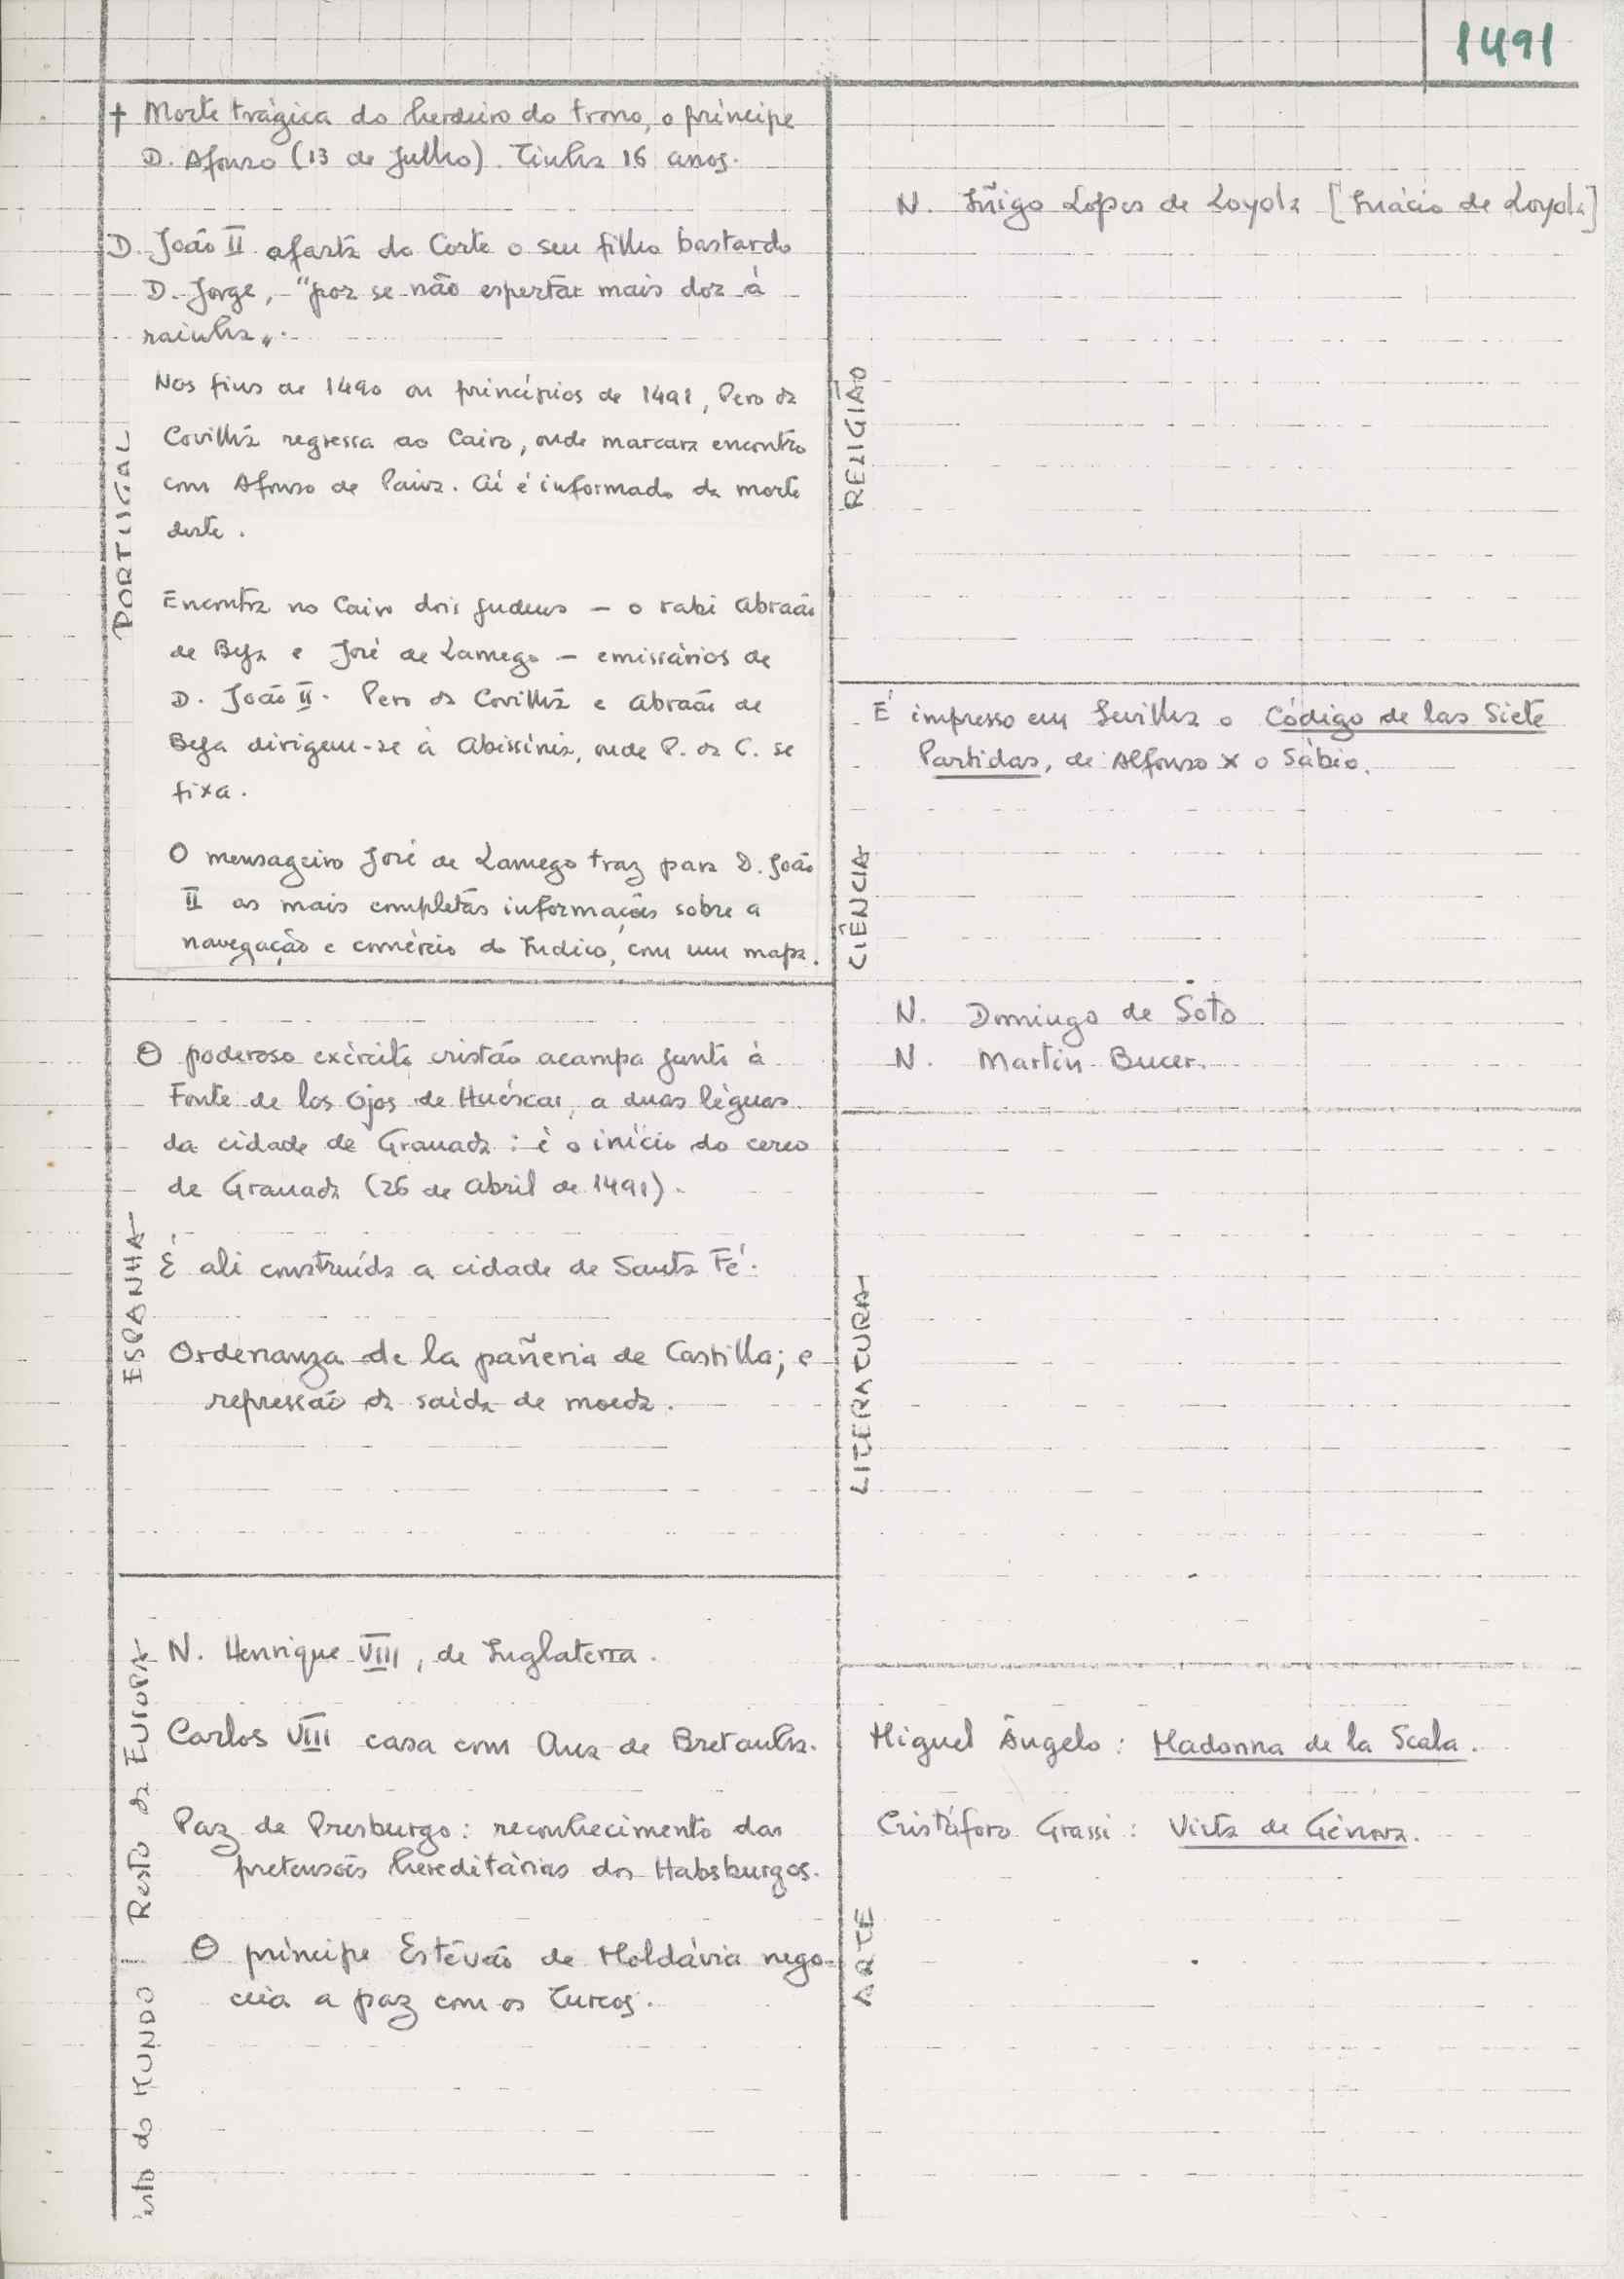 1491
PORTUGAL
† Morte trágica do herdeiro do trono, o príncipe
D. Afonso (13 de Julho). Tinha 16 anos.
D. João II afasta da Corte o seu filho bastardo
D. Jorge, "por se não espertar mais dor à
rainha".
Nos fins de 1490 ou princípios de 1491, Pero da
Covilhã regressa ao Cairo, onde marcara encontro
com Afonso de Paiva. Aí é informado da morte
deste.
Encontra no Cairo dois judeus — o rabi Abraão
de Beja e José de Lamego — emissários de
D. João II. Pero da Covilhã e Abraão de
Beja dirigem-se à Abissínia, onde P. da C. se
fixa.
O mensageiro José de Lamego traz para D. João
II as mais completas informações sobre a
navegação e comércio do Índico, com um mapa.
ESPANHA
O poderoso exército cristão acampa junto à
Fonte de los Ojos de Huéscar, a duas léguas
da cidade de Granada: é o início do cerco
de Granada (26 de Abril de 1491).
É ali construída a cidade de Santa Fé.
Ordenanza de la pañeria de Castilla; e
repressão da saída de moeda.
Resto da EUROPA
N. Henrique VIII, de Inglaterra.
Carlos VIII casa com Ana de Bretanha.
Paz de Presburgo: reconhecimento das
pretensões hereditárias dos Habsburgos.
O príncipe Estêvão de Moldávia nego-
ceia a paz com os Turcos.
do MUNDO
RELIGIÃO
N. Iñigo Lopes de Loyola [Inácio de Loyola]
CIÊNCIA
É impresso em Sevilha o Código de las Siete
Partidas, de Alfonso X o Sábio.
N. Domingo de Soto
N. Martin Bucer.
LITERATURA
ARTE
Miguel Ângelo: Madonna de la Scala.
Cristóforo Grassi: Vista de Génova.